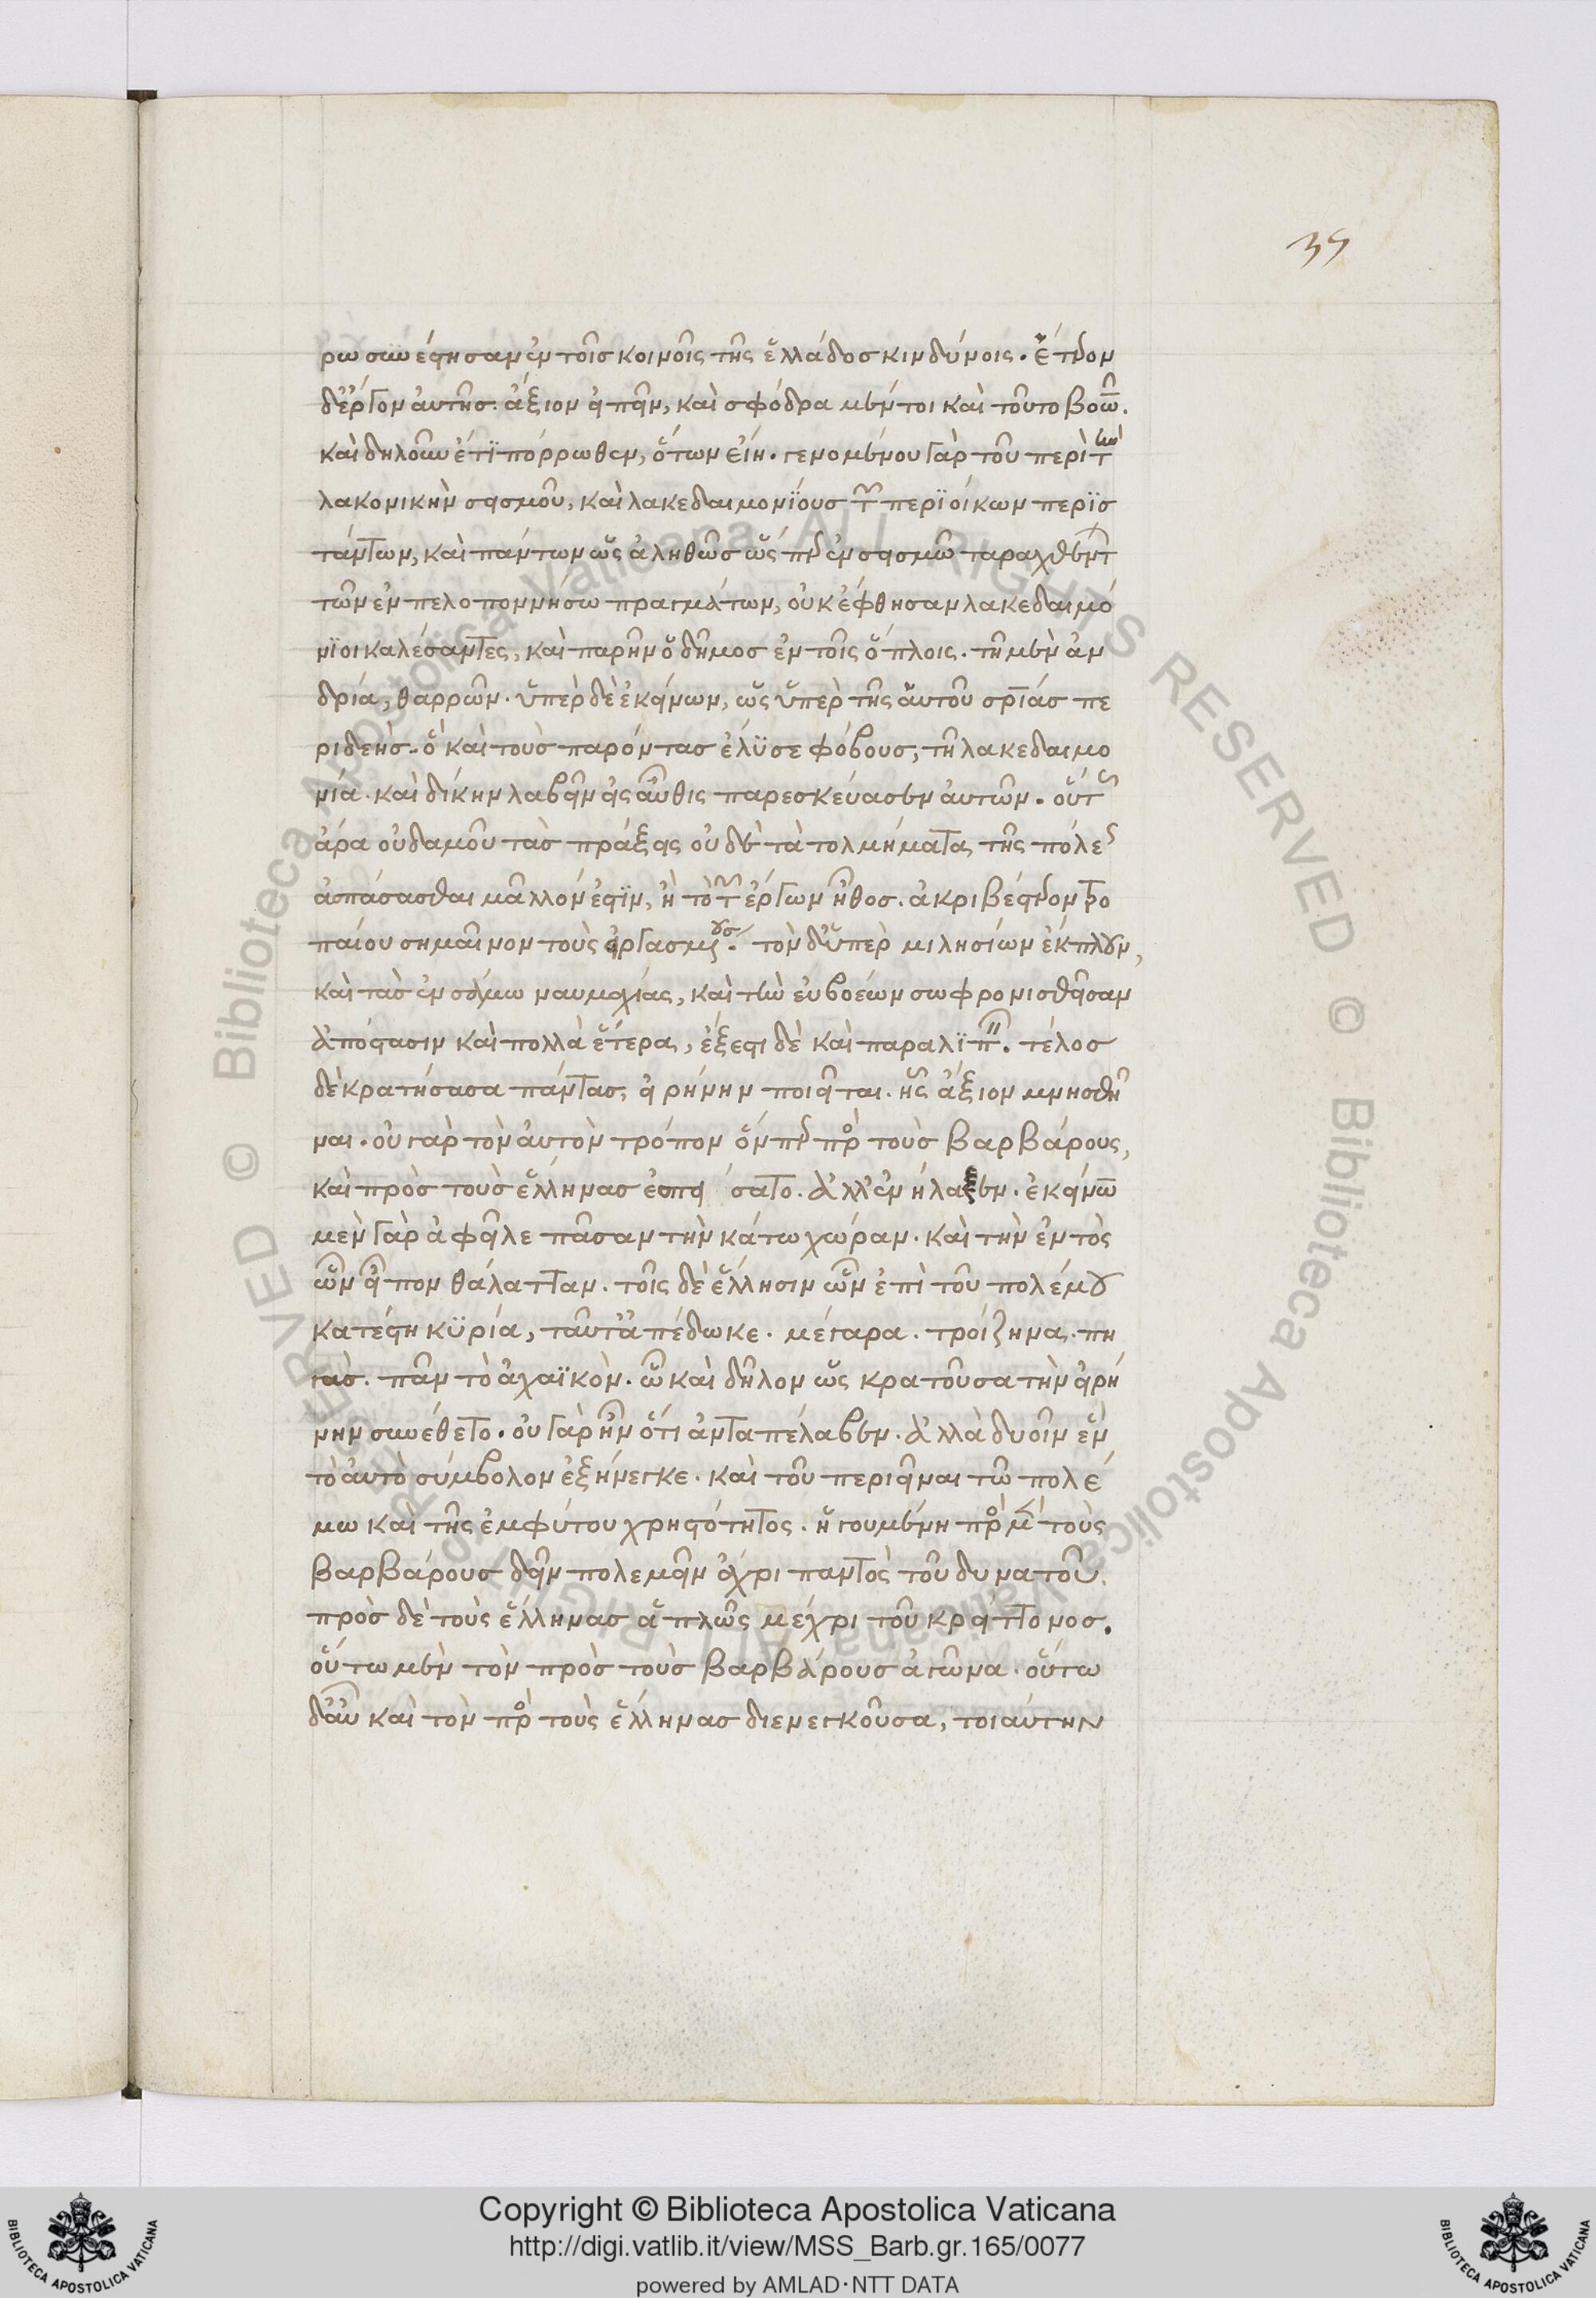 35
ρω συνέστησαν ἐν τοῖς κοινοῖς τῆς ἑλλάδος κινδύνοις. ἕτερον
δ' ἔργον ἀυτῆς ἄξιον εἰπεῖν, καὶ σφόδρα μέντοι καὶ τοῦτο βοῶν.
καὶ δηλοῦν ἔτι πόρρωθεν, ὅτων εἴη. γενομένου γὰρ τοῦ περὶ τὴν
λακονικὴν σεισμοῦ, καὶ λακεδαιμονίους τῶν περιοίκων περισ
τάντων, καὶ πάντων ὡς ἀληθῶς ὥσπερ ἐν σεισμῶ ταραχθέντων
τῶν ἐν πελοποννήσω πραγμάτων, οὐκ ἔφθησαν λακεδαιμό
νιοι καλέσαντες, καὶ παρῆν ὁ δῆμος ἐν τοῖς ὅπλοις. τῆ μὲν ἀν
δρία, θαρρῶν. ὑπὲρ δὲ ἐκείνων, ὡς ὑπὲρ τῆς ἁυτοῦ σωτηρίας πε
ριδεής. ὃ καὶ τοὺς παρόντας ἔλυσε φόβους, τῆ λακεδαιμο
νία. καὶ δίκην λαβεῖν εἰσαῦθις παρεσκεύασεν ἀυτῶν. οὕτως
ἄρα οὐδαμοῦ τὰς πράξεις οὐδὲ τὰ τολμήματα τῆς πόλεως
ἀσπάσασθαι μᾶλλον ἔστιν, ἢ τὸ τῶν ἔργων ἦθος. ἀκριβέστερον τρο
παίου σημαῖνον τοὺς εἰργασμένους. τὸν δ' ὑπὲρ μιλησίων ἔκπλουν,
καὶ τὰς ἐν σάμω ναυμαχίας, καὶ τὴν εὐβοέων σωφρονισθεῖσαν
ἀπόστασιν καὶ πολλὰ ἕτερα, ἔξεστι δὲ καὶ παραλιπεῖν. τέλος
δὲ κρατήσασα πάντας, εἰρήνην ποιεῖται. ἧς ἄξιον μνησθῆ
ναι. οὐ γὰρ τὸν ἀυτὸν τρόπον ὅνπερ πρὸς τοὺς βαρβάρους,
καὶ πρὸς τοὺς ἕλληνας ἐσπείσατο. ἀλλ' ἐνήλαξεν. ἐκείνων
μὲν γὰρ ἀφεῖλε πᾶσαν τὴν κάτω χώραν. καὶ τὴν ἐντὸς
ὧν εἶπον θάλατταν. τοῖς δὲ ἕλλησιν ὧν ἐπὶ τοῦ πολέμου
κατέστη κυρία, ταῦτ' ἀπέδωκε. μέγαρα. τροίζηνα. πη
γάς. πᾶν τὸ ἀχαϊκόν. ὧ καὶ δῆλον ὡς κρατοῦσα τὴν εἰρή
νην συνέθετο. οὐ γὰρ ἦν ὅτι ἀνταπέλαβεν. ἀλλὰ δυοῖν ἓν
τὸ ἀυτὸ σύμβολον ἐξήνεγκε. καὶ τοῦ περιεῖναι τῶ πολέ
μω καὶ τῆς ἐμφύτου χρηστότητος. ἡγουμένη πρὸς μὲν τοὺς
βαρβάρους δεῖν πολεμεῖν ἄχρι παντὸς τοῦ δυνατοῦ.
πρὸς δὲ τοὺς ἕλληνας ἁπλῶς μέχρι τοῦ κρείττονος.
οὕτω μὲν τὸν πρὸς τοὺς βαρβάρους ἀγῶνα. οὕτω
δ' ἂυ καὶ τὸν πρὸς τοὺς ἕλληνας διενεγκοῦσα, τοιαύτην
Copyright © Biblioteca Apostolica Vaticana
http://digi.vatlib.it/view/MSS_Barb.gr.165/0077
powered by AMLAD·NTT DATA